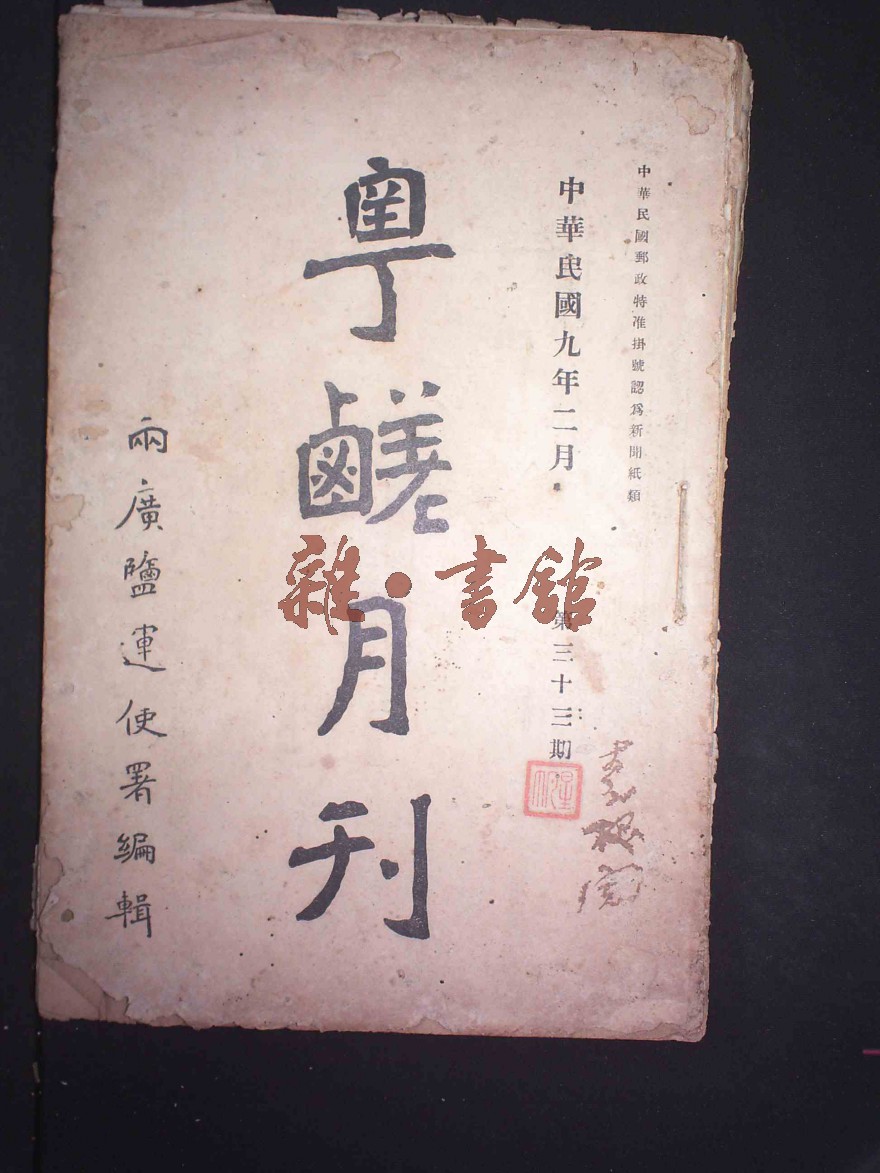 中華民國郵政特准掛號認爲新聞紙類
中華民國九年二月
第三十三期
粤鹺月刊
兩廣鹽運使署編輯
雜·書館